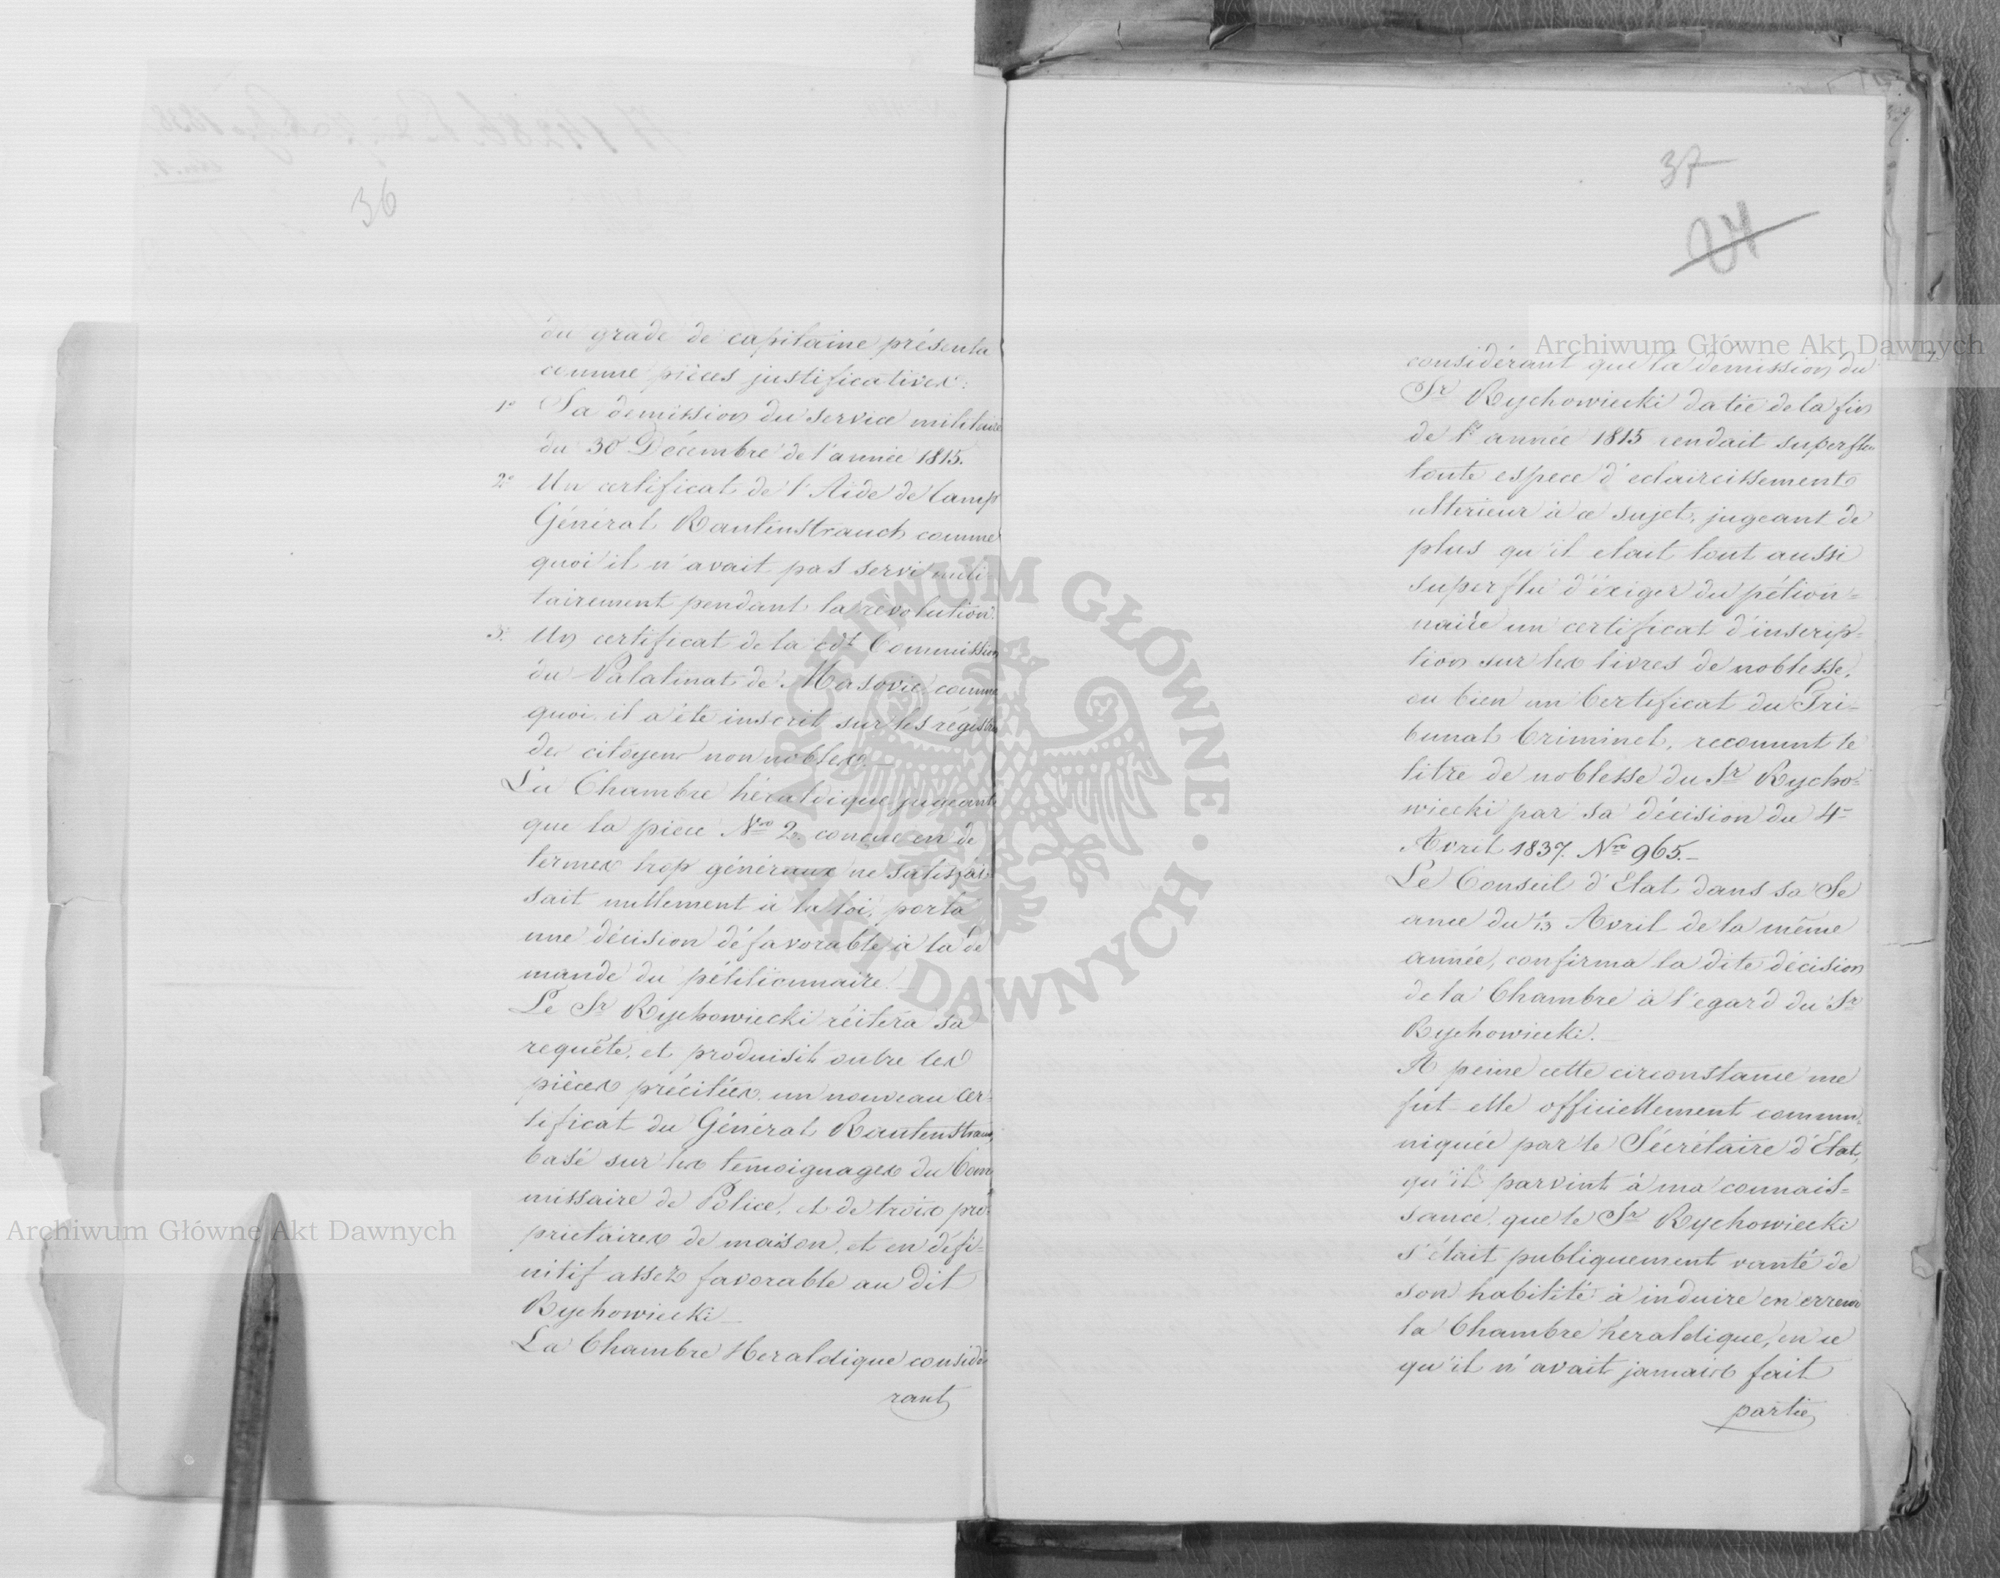 36
du grade de capitaine présenta
comme pièces justificatives:
1º Sa demission du service militaire
du 30 Décembre de l'année 1815.
2º Un certificat de l'Aide de Camp
Général Rautenstrauch comme
quoi il n'avait pas servi mili
tairement pendant la révolution.
3º Un certificat de la cdt Commission
du Palatinat de Masovie comme
quoi il a été inscrit sur les régistres
des citoyens non nobles.—
La Chambre héraldique jugeant
que la piece Nro 2. concue en de
termes trop généraux ne satisfai
sait nullement à la loi, porta
une décision défavorable à la de
mande du pétitionnaire.
Le Sr Rychowiecki réitéra sa
requête, et produisit outre les
pièces précitées, un nouveau cer-
tificat du Général Rautenstrauch
basé sur les temoignages du Com
missaire de Police, et de trois pro
prietaires de maison, et en défi-
nitif assez favorable au dit
Rychowiecki —
La Chambre Heraldique considé
rant
37
24
considérant que la demission du
Sr Rychowiecki datée de la fin
de l'année 1815 rendait superflu
toute espece d'eclaircissement
ulterieur à ce sujet, jugeant de
plus qu'il etait tout aussi
superflu d'éxiger du pétion-
naire un certificat d'inscrip-
tion sur les livres de noblesse,
ou bien un Certificat du Tri-
bunal Criminel, reconnut le
titre de noblesse du Sr Rycho-
wiecki par sa décision du 4-
Avril 1837. Nro 965.—
Le Conseil d'Etat dans sa Se
ance du 1/13 Avril de la même
année, confirma la dite décision
de la Chambre à l'egard du Sr
Rychowiecki.—
A peine cette circonstance me
fut-elle officiellement commu-
niquée par le Sécrétaire d'Etat,
qu'il parvint à ma connais-
sance, que le Sr Rychowiecki
s'était publiquement vanté de
son habilité à induire en erreur
la Chambre héraldique, en ce
qu'il n'avait jamais fait
partie
Archiwum Główne Akt Dawnych
Archiwum Główne Akt Dawnych
ARCHIWUM GŁÓWNE · AKT DAWNYCH ·